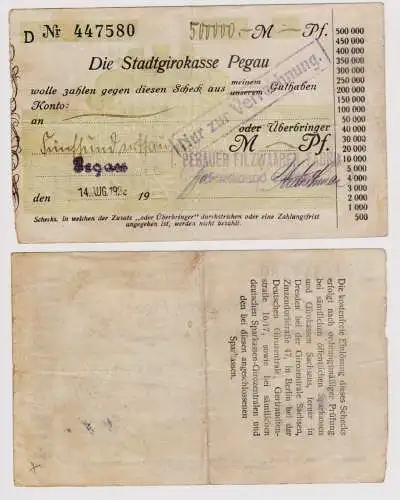 D № 447580
500000.- M Pf.
Die Stadtgirokasse Pegau
wolle zahlen gegen diesen Scheck aus meinem Guthaben
unserem
Konto:
Nur zur Verrechnung.
an
oder Überbringer
M Pf.
PEGAUER FILZWAREN
Pegau
den 14. AUG. 1923 19
Schecks, in welchen der Zusatz „oder Überbringer" durchstrichen oder eine Zahlungsfrist
angegeben ist, werden nicht bezahlt.
500 000
400 000
300 000
250 000
200 000
150 000
100 000
50 000
40 000
30 000
20 000
10 000
5 000
4 000
3 000
2 000
1 000
500
Die kostenfreie Einlösung dieses Schecks
erfolgt nach ordnungsmäßiger Prüfung
bei sämtlichen öffentlichen Sparkassen
und Girokassen Sachsens, ferner in
Dresden bei der Girozentrale Sachsen,
Zinzendorfstraße 47, in Berlin bei der
Deutschen Girozentrale, Gertraudten-
straße 16/17, sowie bei sämtlichen
deutschen Sparkassen-Girozentralen und
den bei diesen angeschlossenen
Sparkassen.